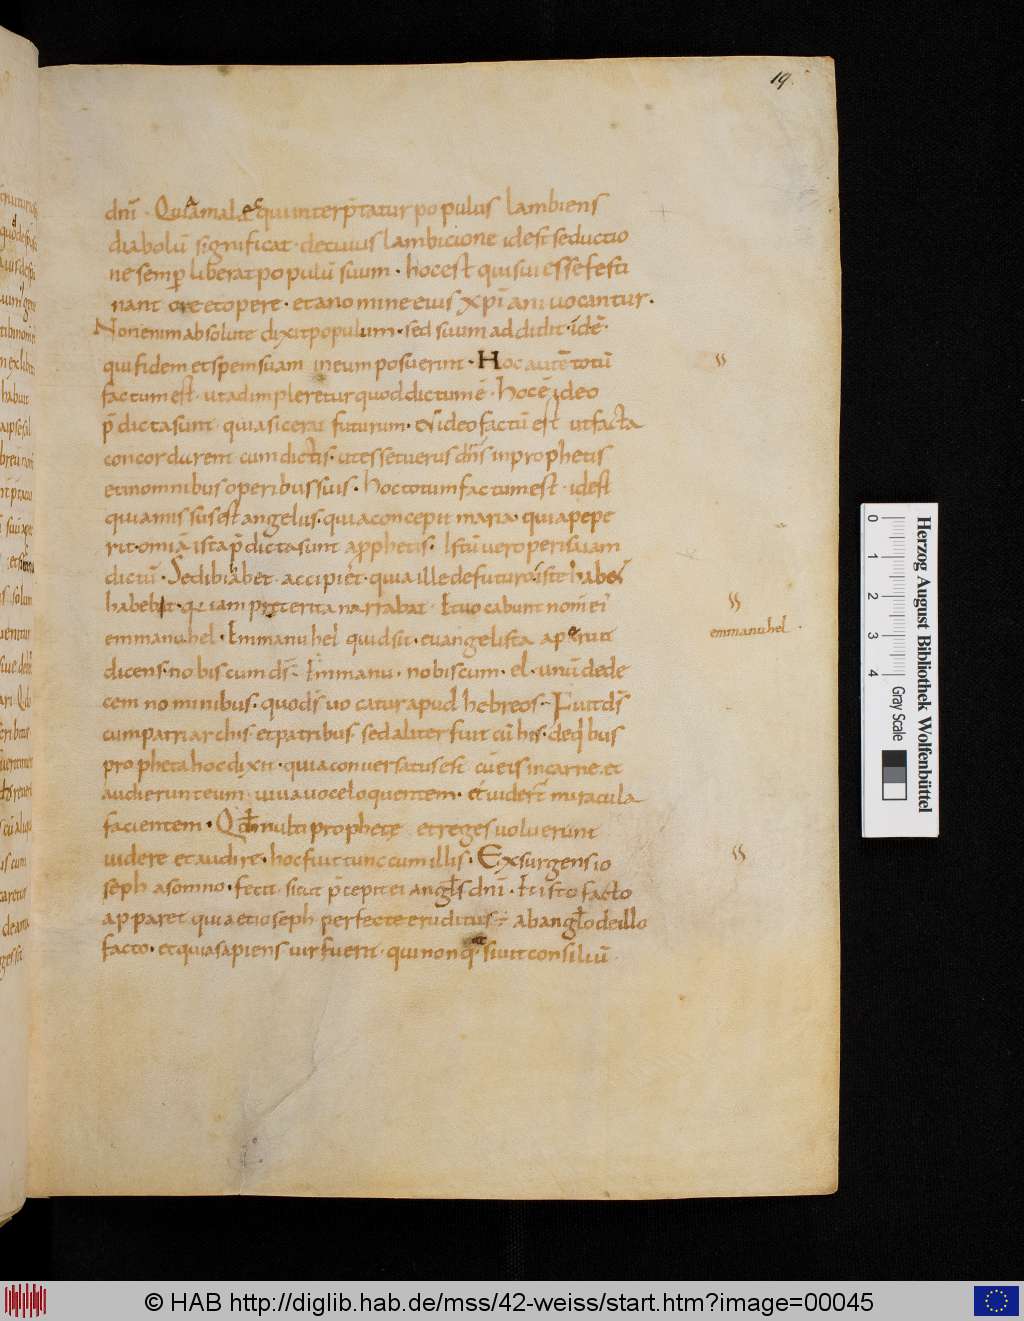 19.
dnī · Quia amalaec quiinterp̄tatur populus lambiens
diabolū significat · decuius lambicione idest seductio
ne semp̱ liberat populū suum · hocest quisui esse festi
nant ore etopere · etanomine eius xp̄iani uocantur.
Nonenim absolute dixit populum · sed suum addidit · idē·
quifidem etspemsuam ineum posuerint · Hoc autē totū
factum est · ut adimpleretur quod dictum ē · hoc ē ideo
p̄dicta sunt · quia sic erat futurum · & ideo factū est ut facta
concordarent cum dictis · ut esset uerus dn̄s in prophetis
et inomnibus operibus suis · hoc totum factum est · idest
quia missus est angelus · quia concepit maria · quia pepe
rit · omīa ista p̄dicta sunt a pphetis · Istū uero per isaiam
dictū · Sed ibi habet · accipiet · quia ille de futuro iste habet
habebit · q̄ iam preterita narrabat · Et uocabunt nom̄ ei'
emmanuhel · Emmanuhel quid sit · euangelista aperuit
dicens · nobiscum ds̄ · Emmanu · nobiscum · el · unū dede
cem nominibus · quo ds̄ uocatur apud hebreos · Fuit ds̄
cum patriarchis · et patribus · sed aliter fuit cū his · de q'bus
propheta hoc dixit · quia conuersatus est cū eis in carne · et
audierunt eum · uiua uoce loquentem · et uidert̄ miracula
facientem · Qđ multi prophetę et reges uoluerunt
uidere et audire · hoc fuit tunc cum illis · Exsurgens io
seph a somno · fecit sicut p̄cepit ei angłs dnī · Et isto facto
apparet quia et ioseph perfecte eruditus ÷ ab angło de illo
facto · et quia sapiens uir fuerit · qui non q̄siuit consiliū ·
emmanuhel
0 1 2 3 4
Gray Scale
Herzog August Bibliothek Wolfenbüttel
© HAB http://diglib.hab.de/mss/42-weiss/start.htm?image=00045